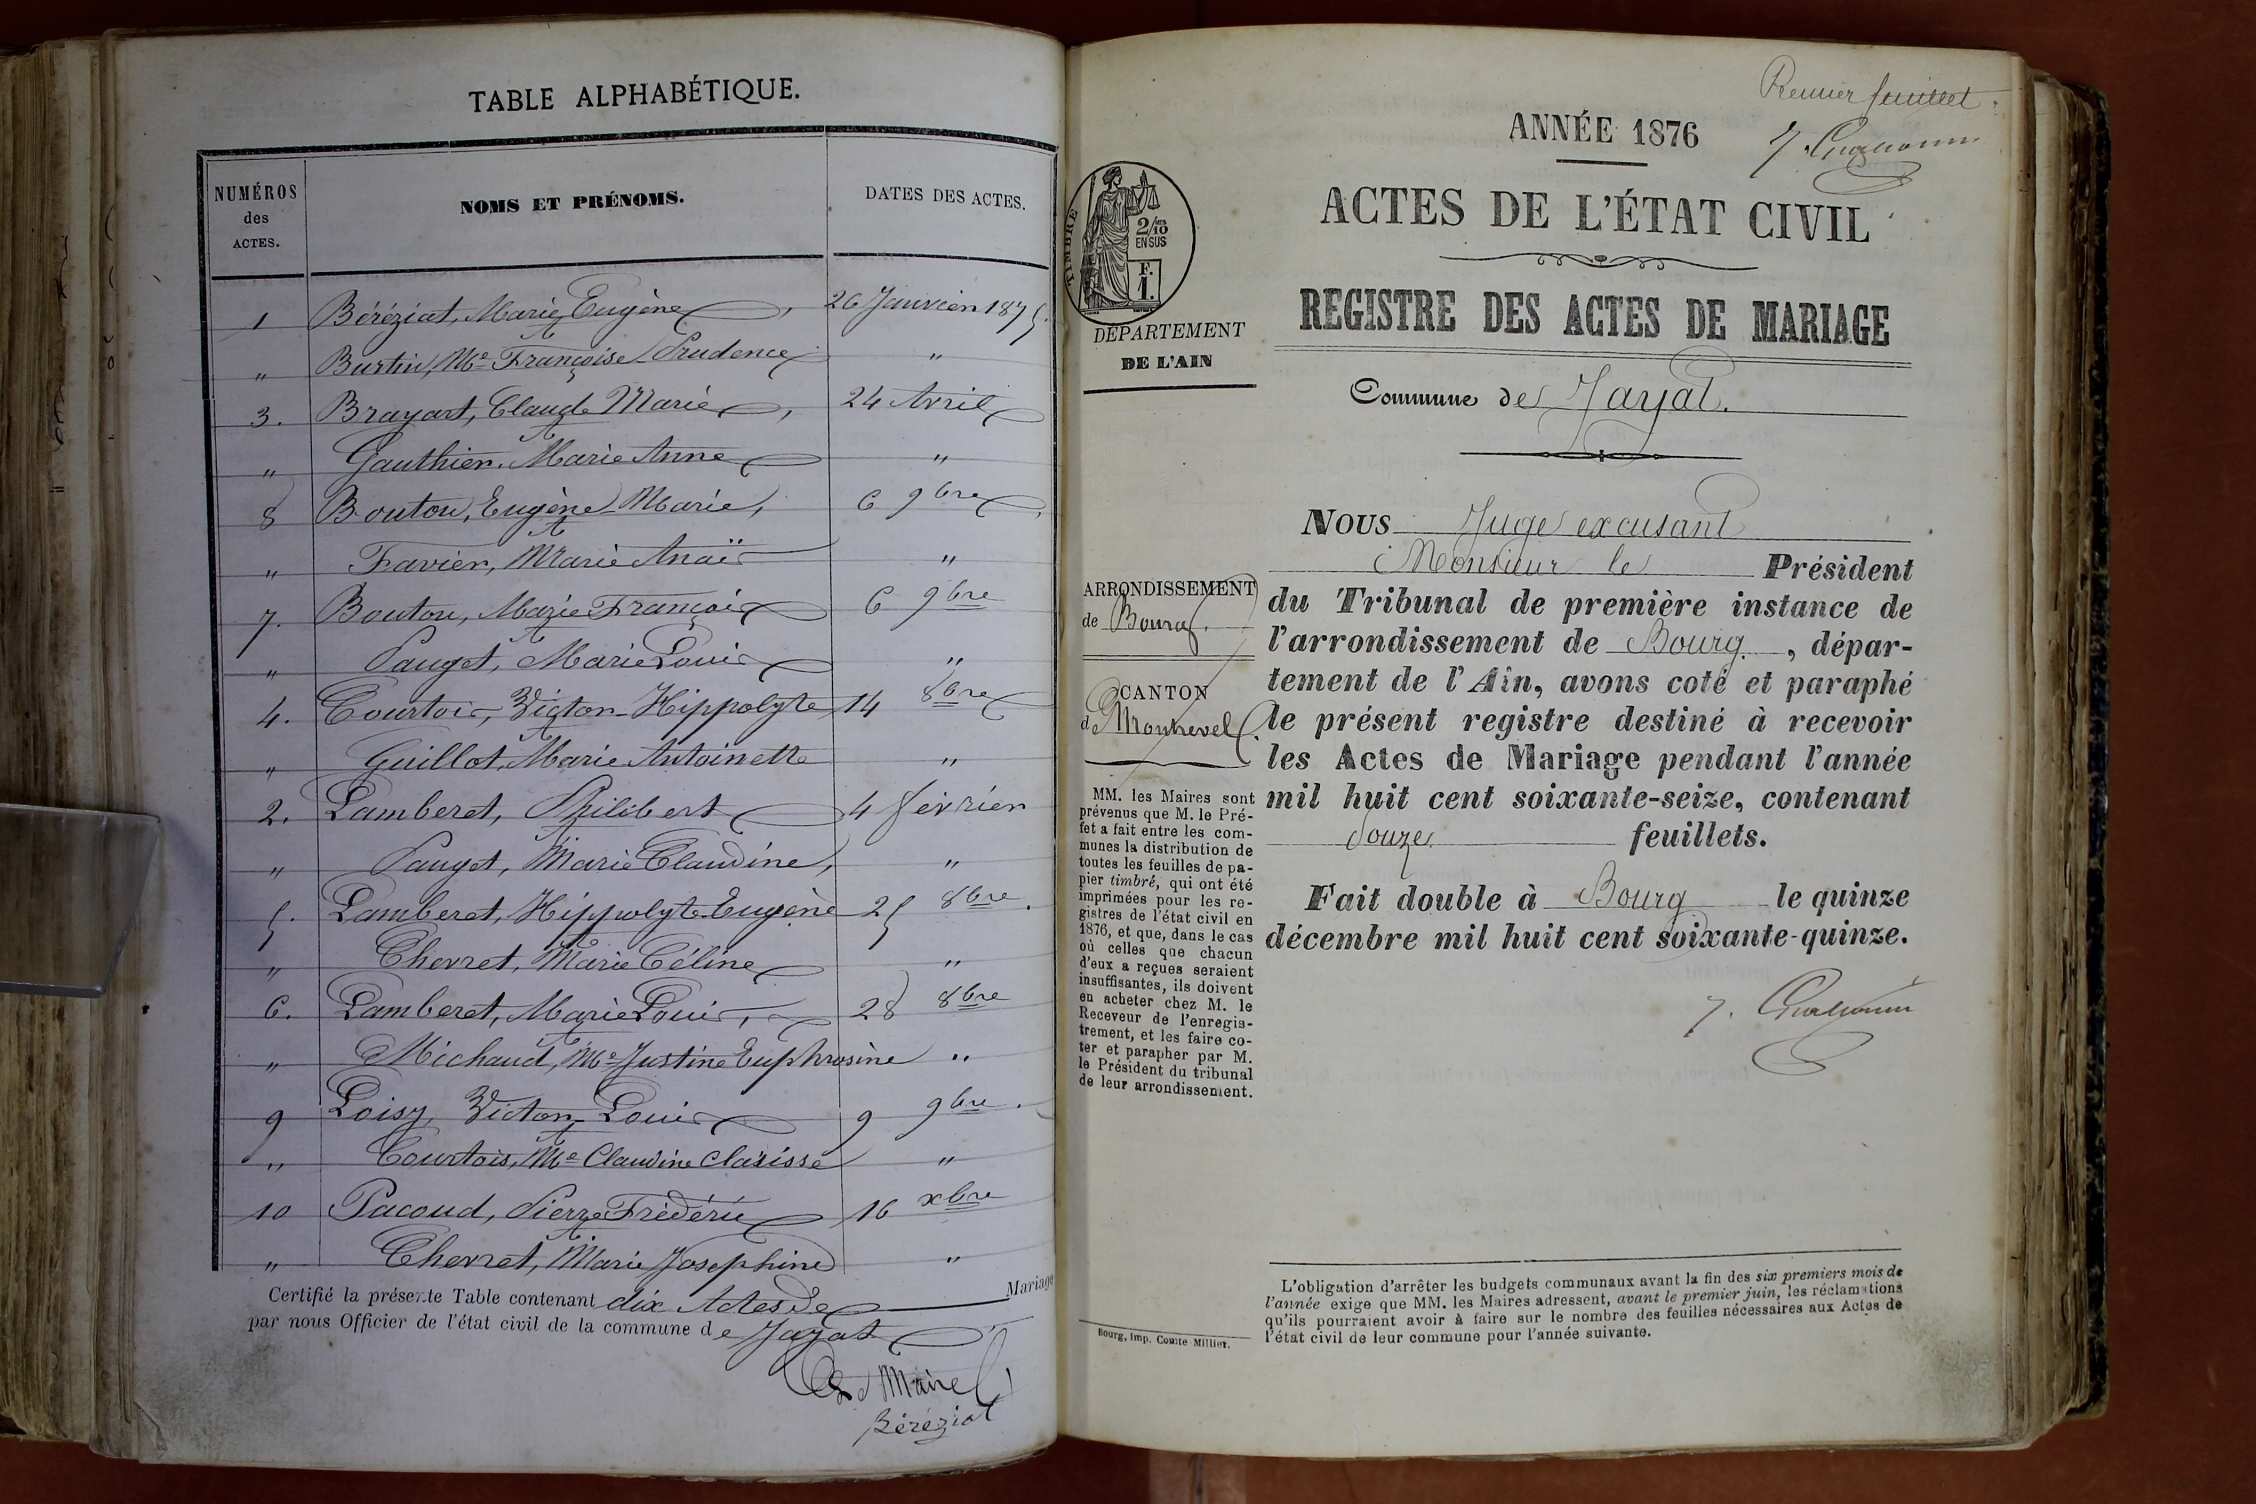 TABLE ALPHABÉTIQUE.
NUMÉROS des ACTES.
NOMS ET PRÉNOMS.
DATES DES ACTES.
1 Béréziat, Marie Eugène, 26 Janvier 1875.
" Burtin, Me Françoise Prudence "
3. Brayart, Claude Marie, 24 Avril
" Gauthier, Marie Anne "
8 Bouton, Eugène Marie, 6 9bre
" Favier, Marie Anaïs "
7. Bouton, Marie François 6 9bre
" Pauget, Marie Louise "
4. Courtois, Victor Hippolyte 14 8bre
" Guillot, Marie Antoinette "
2. Lamberet, Philibert 4 février
" Pauget, Marie Claudine, "
5. Lamberet, Hippolyte Eugène 25 8bre.
" Chevret, Marie Céline "
6. Lamberet, Marie Louis, 28 8bre
" Michaud, Me Justine Euphrosine "
9 Loisy, Victor Louis 9 9bre.
" Courtois, Me Claudine Clarisse "
10 Pacoud, Pierre Frédéric 16 xbre
" Chevret, Marie Josephine "
Certifié la présente Table contenant dix Actes de Mariage
par nous Officier de l'état civil de la commune de Jayat
Le Maire
Béréziat
Premier feuillet.
ANNÉE 1876
ACTES DE L'ÉTAT CIVIL
TIMBRE
2/10 EN SUS
F. 1.
REGISTRE DES ACTES DE MARIAGE
DÉPARTEMENT
DE L'AIN
Commune de Jayat.
NOUS Juge excusant
Monsieur le Président
du Tribunal de première instance de
l'arrondissement de Bourg, dépar-
tement de l'Ain, avons coté et paraphé
le présent registre destiné à recevoir
les Actes de Mariage pendant l'année
mil huit cent soixante-seize, contenant
douze feuillets.
Fait double à Bourg le quinze
décembre mil huit cent soixante-quinze.
ARRONDISSEMENT
de Bourg.
CANTON
de Montrevel.
MM. les Maires sont
prévenus que M. le Pré-
fet a fait entre les com-
munes la distribution de
toutes les feuilles de pa-
pier timbré, qui ont été
imprimées pour les re-
gistres de l'état civil en
1876, et que, dans le cas
où celles que chacun
d'eux a reçues seraient
insuffisantes, ils doivent
en acheter chez M. le
Receveur de l'enregis-
trement, et les faire co-
ter et parapher par M.
le Président du tribunal
de leur arrondissement.
L'obligation d'arrêter les budgets communaux avant la fin des six premiers mois de
l'année exige que MM. les Maires adressent, avant le premier juin, les réclamations
qu'ils pourraient avoir à faire sur le nombre des feuilles nécessaires aux Actes de
l'état civil de leur commune pour l'année suivante.
Bourg, imp. Comte Millier.